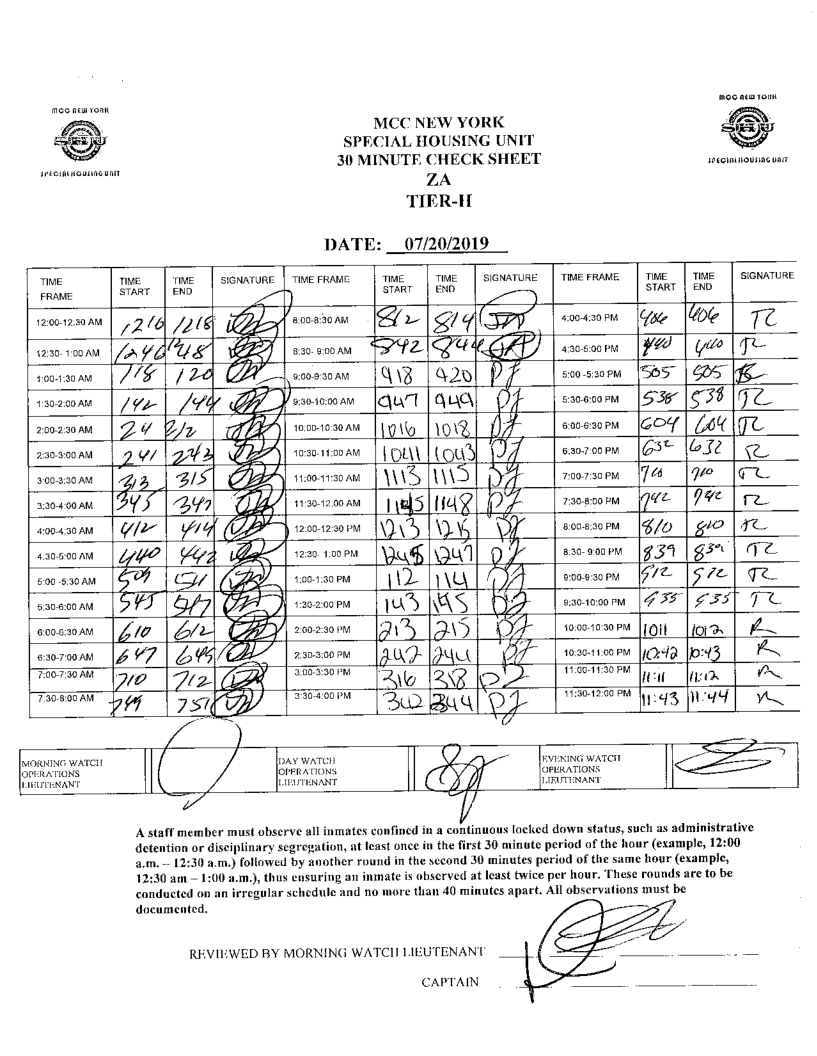 MCC NEW YORK
SHU
SPECIAL HOUSING UNIT
MCC NEW YORK
SPECIAL HOUSING UNIT
30 MINUTE CHECK SHEET
ZA
TIER-H
MCC NEW YORK
SHU
SPECIAL HOUSING UNIT
DATE: 07/20/2019
TIME FRAME TIME START TIME END SIGNATURE TIME FRAME TIME START TIME END SIGNATURE TIME FRAME TIME START TIME END SIGNATURE
12:00-12:30 AM 1216 1218 8:00-8:30 AM 812 814 4:00-4:30 PM 406 406 TR
12:30- 1:00 AM 1246 1248 8:30- 9:00 AM 842 844 4:30-5:00 PM 440 440 TR
1:00-1:30 AM 118 120 9:00-9:30 AM 918 920 PJ 5:00 -5:30 PM 505 505 TR
1:30-2:00 AM 142 144 9:30-10:00 AM 947 949 PJ 5:30-6:00 PM 538 538 TR
2:00-2:30 AM 10:00-10:30 AM 1016 1018 PJ 6:00-6:30 PM 604 604 TR
2:30-3:00 AM 241 243 10:30-11:00 AM 1041 1043 PJ 6:30-7:00 PM 632 632 TR
3:00-3:30 AM 313 315 11:00-11:30 AM 1113 1115 PJ 7:00-7:30 PM 710 710 TR
3:30-4:00 AM 345 347 11:30-12:00 AM 1145 1148 PJ 7:30-8:00 PM 742 742 TR
4:00-4:30 AM 412 414 12:00-12:30 PM 1213 1215 PJ 8:00-8:30 PM 810 810 TR
4:30-5:00 AM 440 442 12:30- 1:00 PM 1245 1247 PJ 8:30- 9:00 PM 839 839 TR
5:00 -5:30 AM 509 511 1:00-1:30 PM 112 114 PJ 9:00-9:30 PM 912 912 TR
5:30-6:00 AM 545 547 1:30-2:00 PM 143 145 PJ 9:30-10:00 PM 935 935 TR
6:00-6:30 AM 610 612 2:00-2:30 PM 213 215 PJ 10:00-10:30 PM 1011 1012
6:30-7:00 AM 647 649 2:30-3:00 PM 242 244 PJ 10:30-11:00 PM 10:42 10:43
7:00-7:30 AM 710 712 3:00-3:30 PM 316 318 PJ 11:00-11:30 PM 11:11 11:12
7:30-8:00 AM 749 751 3:30-4:00 PM 342 344 PJ 11:30-12:00 PM 11:43 11:44
MORNING WATCH OPERATIONS LIEUTENANT DAY WATCH OPERATIONS LIEUTENANT EVENING WATCH OPERATIONS LIEUTENANT
A staff member must observe all inmates confined in a continuous locked down status, such as administrative
detention or disciplinary segregation, at least once in the first 30 minute period of the hour (example, 12:00
a.m. – 12:30 a.m.) followed by another round in the second 30 minutes period of the same hour (example,
12:30 am – 1:00 a.m.), thus ensuring an inmate is observed at least twice per hour. These rounds are to be
conducted on an irregular schedule and no more than 40 minutes apart. All observations must be
documented.
REVIEWED BY MORNING WATCH LIEUTENANT
CAPTAIN